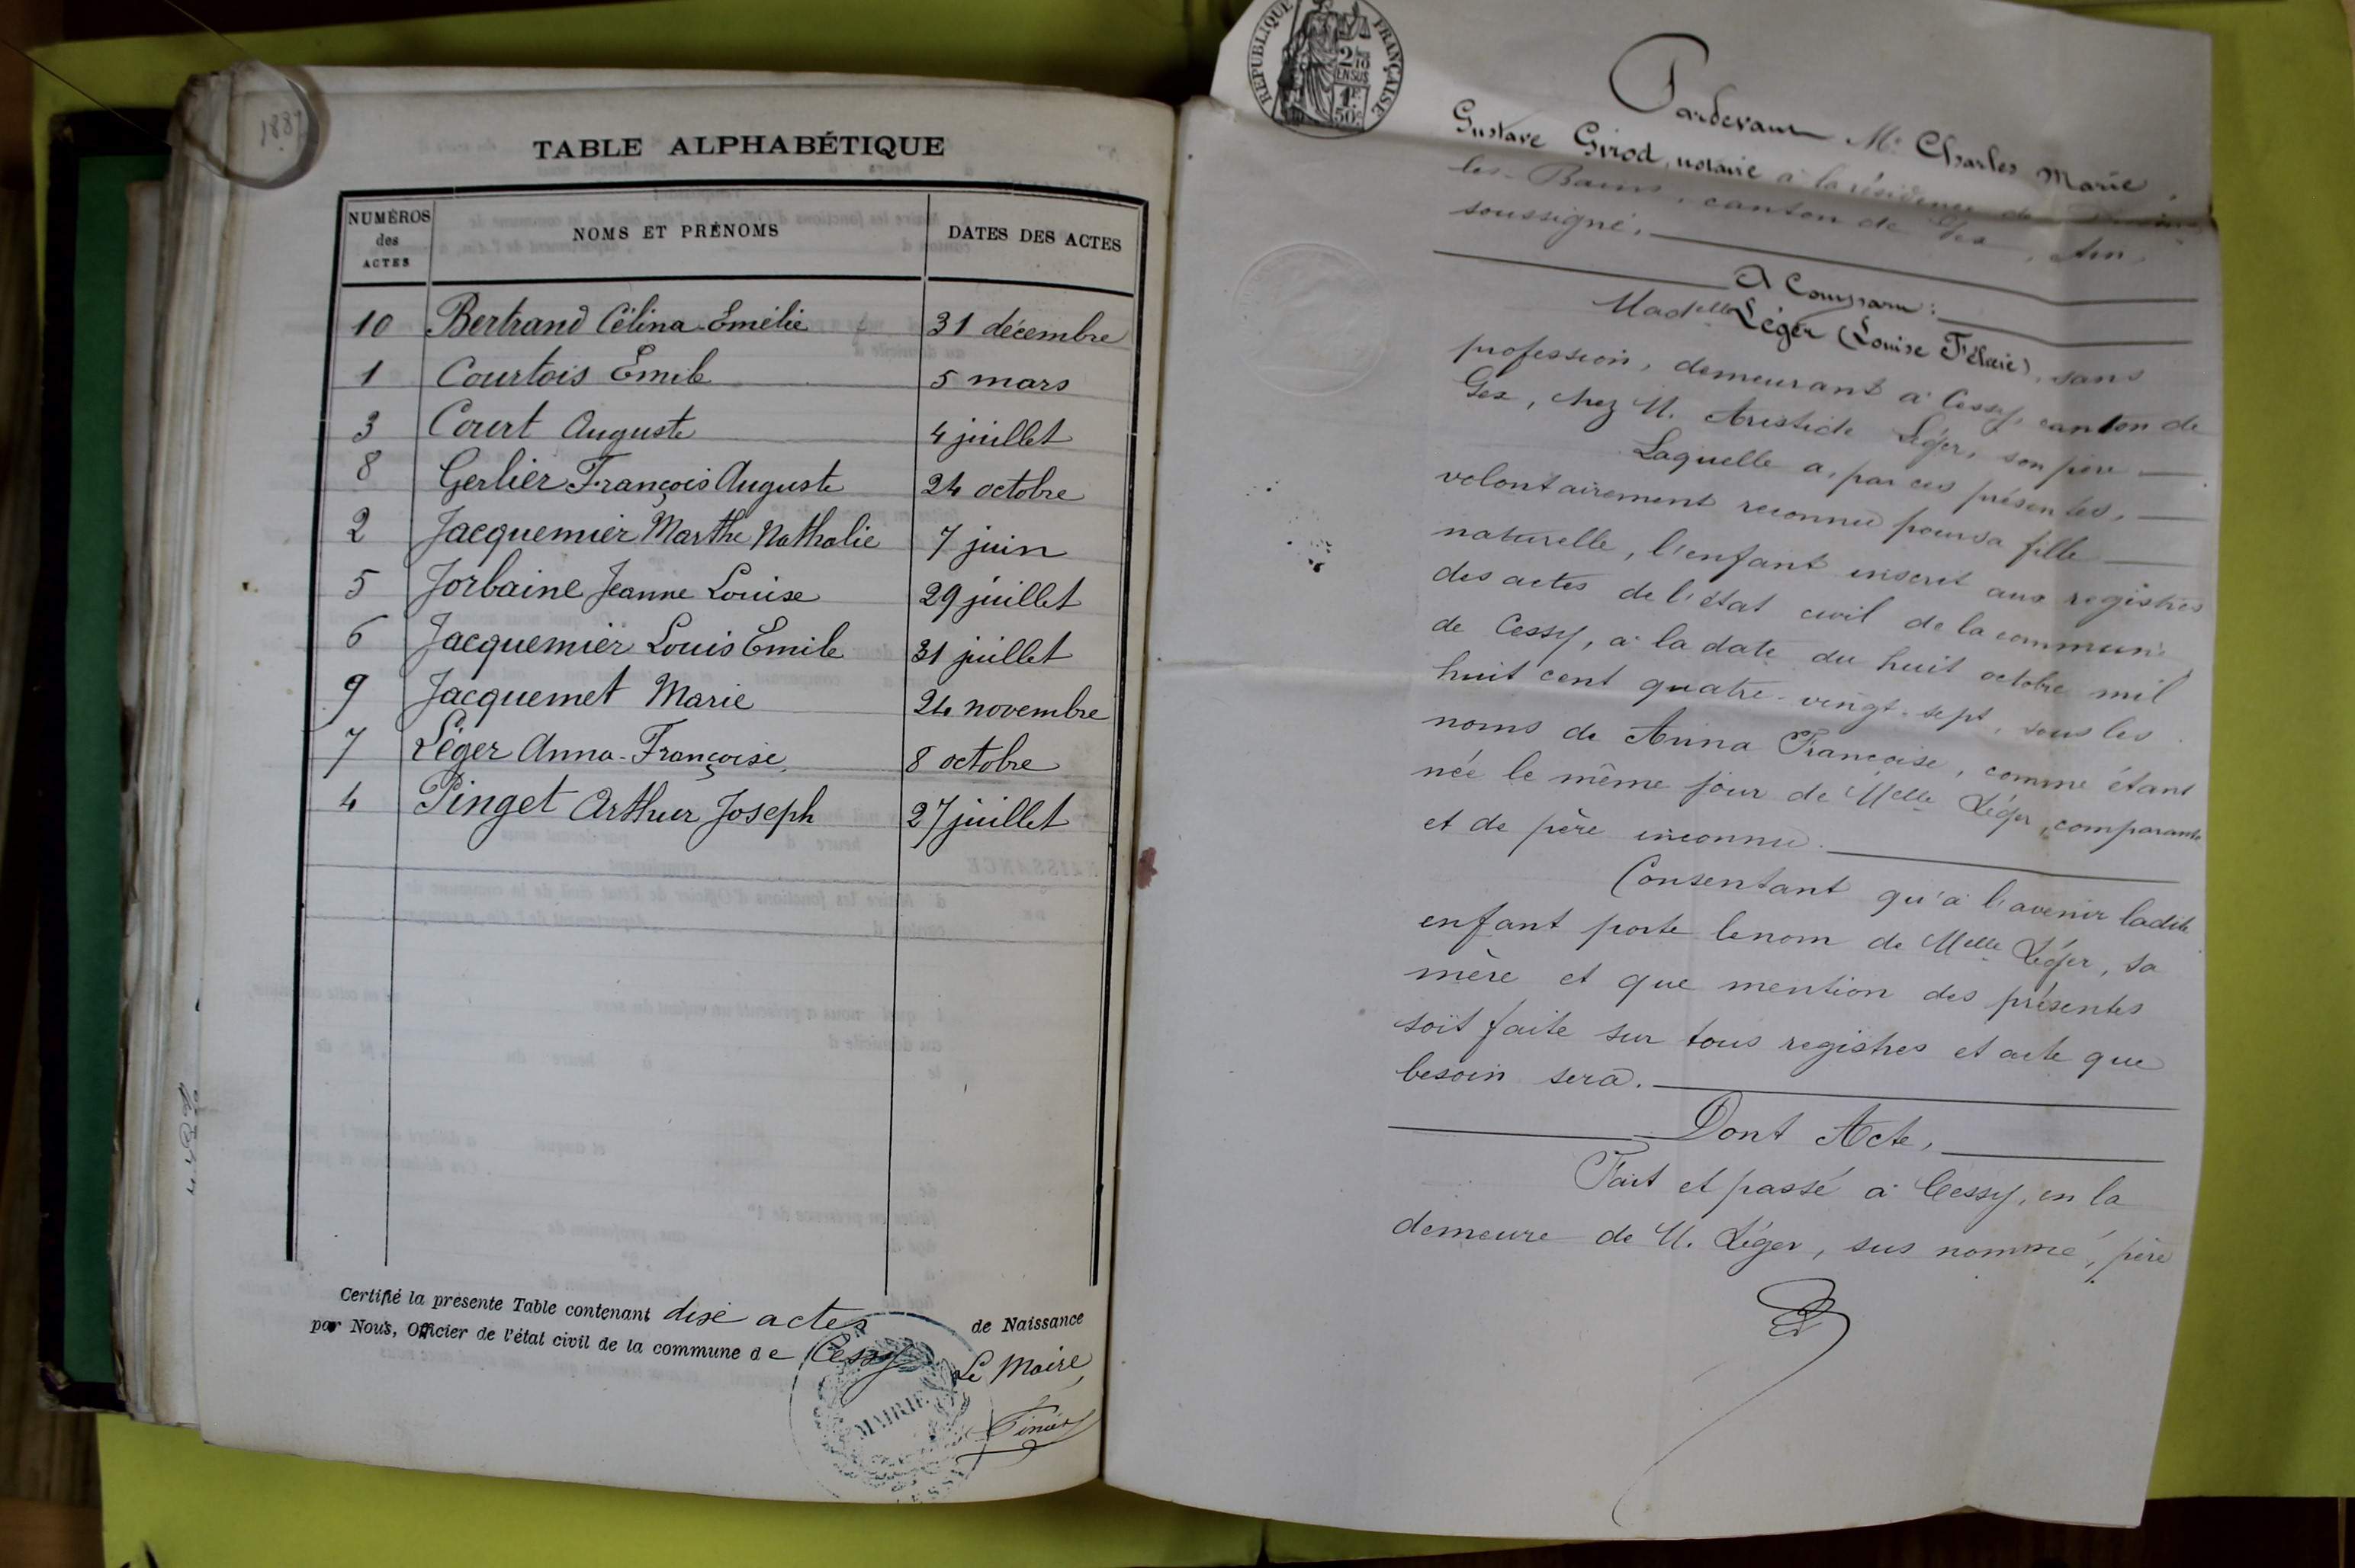 1887
TABLE ALPHABÉTIQUE
NUMÉROS des ACTES
NOMS ET PRÉNOMS
DATES DES ACTES
10 Bertrand Célina-Emélie 31 décembre
1 Courtois Emile 5 mars
3 Court Auguste 4 juillet
8 Gerlier François Auguste 24 octobre
2 Jacquemier Marthe Nathalie 7 juin
5 Jorbaine Jeanne Louise 29 juillet
6 Jacquemier Louis Emile 31 juillet
9 Jacquemet Marie 24 novembre
7 Léger Anna-Françoise 8 octobre
4 Pinget Arthur Joseph 27 juillet
Certifié la présente Table contenant dix actes de Naissance
par Nous, Officier de l'état civil de la commune de Cessy
Le Maire,
MAIRIE
RÉPUBLIQUE FRANÇAISE
2/10
EN SUS
1F
50c
Pardevant Me Charles Marie
Gustave Girod, notaire à la résidence de Divonne
les-Bains, canton de Gex, Ain,
soussigné,
A Comparu :
Madelle Léger (Louise Félicie), sans
profession, demeurant à Cessy, canton de
Gex, chez M. Aristide Léger, son père
Laquelle a, par ces présentes,
volontairement reconnu pour sa fille
naturelle, l'enfant inscrit aux registres
des actes de l'état civil de la commune
de Cessy, à la date du huit octobre mil
huit cent quatre-vingt-sept, sous les
noms de Anna Françoise, comme étant
née le même jour de Melle Léger, comparante
et de père inconnu.
Consentant qu'à l'avenir ladite
enfant porte le nom de Melle Léger, sa
mère et que mention des présentes
soit faite sur tous registres et acte que
besoin sera.
Dont Acte,
Fait et passé à Cessy, en la
demeure de M. Léger, sus nommé, père